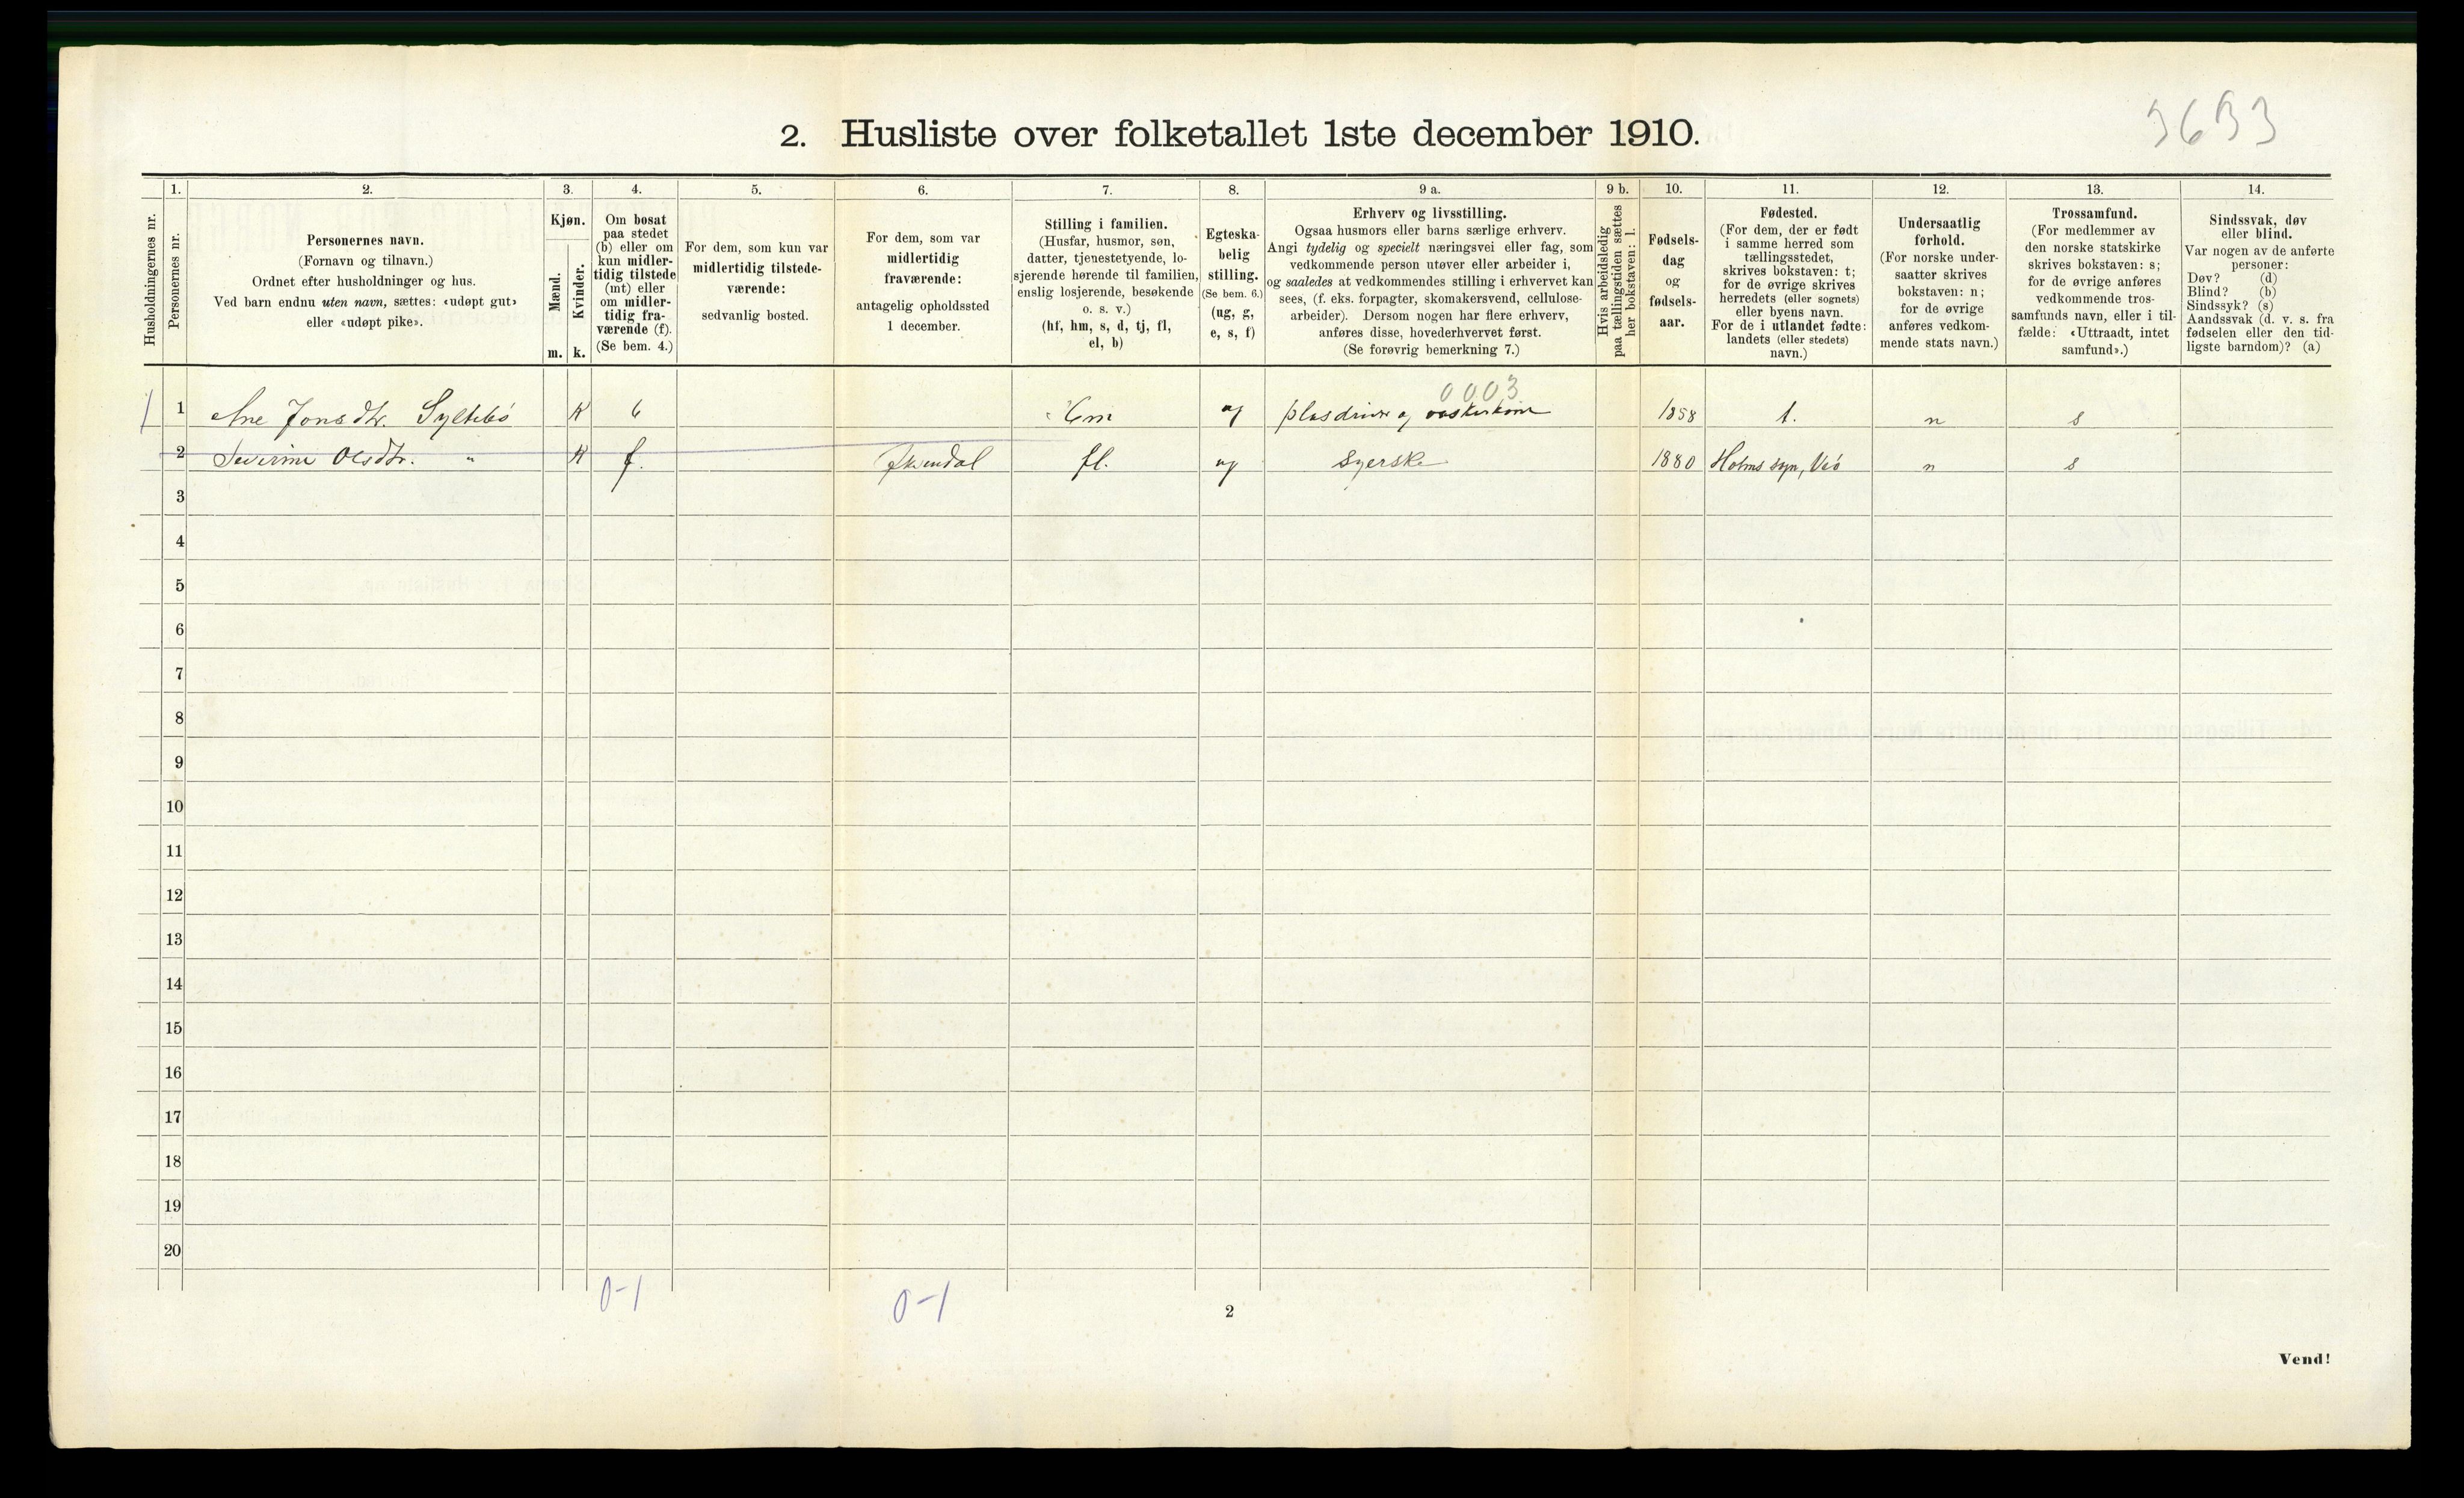 3633
2. Husliste over folketallet 1ste december 1910.
Husholdningernes nr.
1.
Personernes nr.
2.
Personernes navn.
(Fornavn og tilnavn.)
Ordnet efter husholdninger og hus.
Ved barn endnu uten navn, sættes: «udøpt gut»
eller «udøpt pike».
3.
Kjøn.
Mænd.
Kvinder.
m. k.
4.
Om bosat
paa stedet
(b) eller om
kun midler-
tidig tilstede
(mt) eller
om midler-
tidig fra-
værende (f).
(Se bem. 4.)
5.
For dem, som kun var
midlertidig tilstede-
værende:
sedvanlig bosted.
6.
For dem, som var
midlertidig
fraværende:
antagelig opholdssted
1 december.
7.
Stilling i familien.
(Husfar, husmor, søn,
datter, tjenestetyende, lo-
sjerende hørende til familien,
enslig losjerende, besøkende
o. s. v.)
(hf, hm, s, d, tj, fl,
el, b)
8.
Egteska-
belig
stilling.
(Se bem. 6.)
(ug, g,
e, s, f)
9 a.
Erhverv og livsstilling.
Ogsaa husmors eller barns særlige erhverv.
Angi tydelig og specielt næringsvei eller fag, som
vedkommende person utøver eller arbeider i,
og saaledes at vedkommendes stilling i erhvervet kan
sees, (f. eks. forpagter, skomakersvend, cellulose-
arbeider). Dersom nogen har flere erhverv,
anføres disse, hovederhvervet først.
(Se forøvrig bemerkning 7.)
9 b.
Hvis arbeidsledig
paa tællingstiden sættes
her bokstaven: l.
10.
Fødsels-
dag
og
fødsels-
aar.
11.
Fødested.
(For dem, der er født
i samme herred som
tællingsstedet,
skrives bokstaven: t;
for de øvrige skrives
herredets (eller sognets)
eller byens navn.
For de i utlandet fødte:
landets (eller stedets)
navn.)
12.
Undersaatlig
forhold.
(For norske under-
saatter skrives
bokstaven: n;
for de øvrige
anføres vedkom-
mende stats navn.)
13.
Trossamfund.
(For medlemmer av
den norske statskirke
skrives bokstaven: s;
for de øvrige anføres
vedkommende tros-
samfunds navn, eller i til-
fælde: «Uttraadt, intet
samfund».)
14.
Sindssvak, døv
eller blind.
Var nogen av de anførte
personer:
Døv? (d)
Blind? (b)
Sindssyk? (s)
Aandssvak (d. v. s. fra
fødselen eller den tid-
ligste barndom)? (a)
0003
1 1 Ane Jonsdtr. Syltebø K b hm ug plasdriver og vaskerkone 1858 t. n s
2 Severine Olsdtr. " K f. fl. ug Syerske 1880 Holms sogn, Veö n s
3
4
5
6
7
8
9
10
11
12
13
14
15
16
17
18
19
20
0-1 0-1
2
Vend!